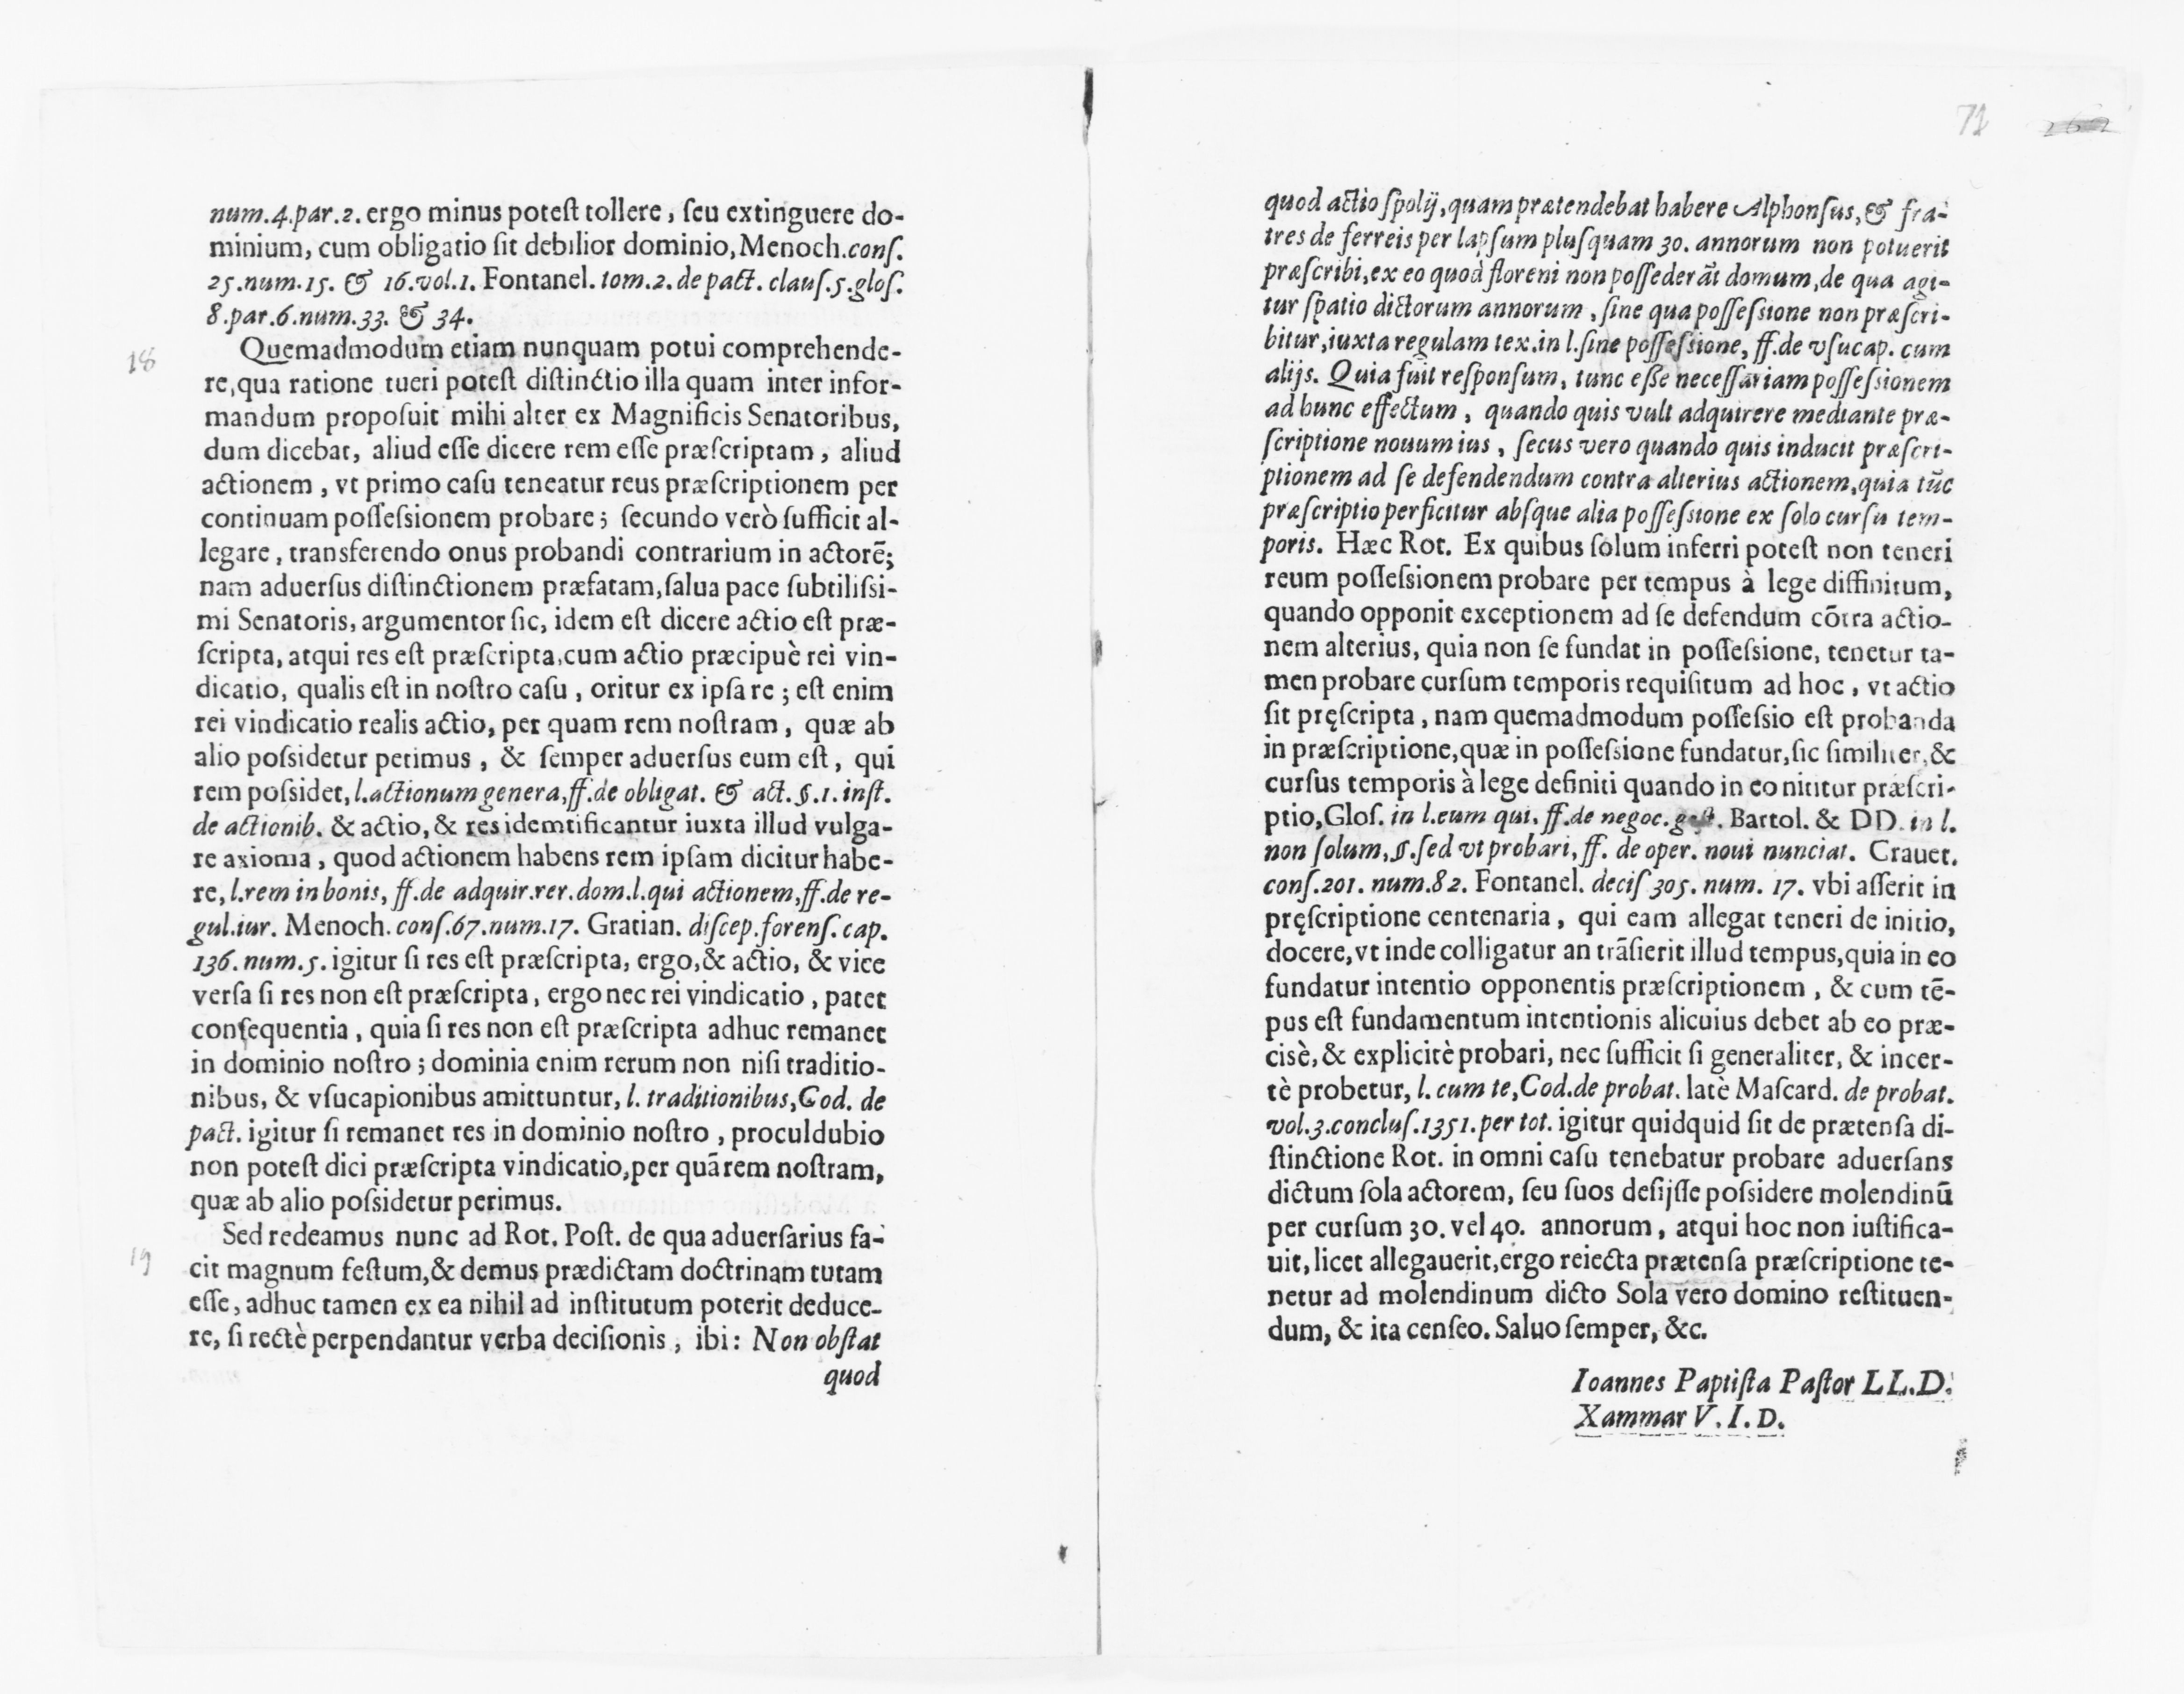 num.4.par.2. ergo minus poteſt tollere, ſeu extinguere do-
minium, cum obligatio ſit debilior dominio, Menoch. conſ.
25.num.15. & 16.vol.1. Fontanel. tom.2. de pact. clauſ.5.gloſ.
8.par.6.num.33. & 34.
18
Quemadmodum etiam nunquam potui comprehende-
re, qua ratione tueri poteſt diſtinctio illa quam inter infor-
mandum propoſuit mihi alter ex Magnificis Senatoribus,
dum dicebat, aliud eſſe dicere rem eſſe præſcriptam, aliud
actionem, vt primo caſu teneatur reus præſcriptionem per
continuam poſſeſsionem probare; ſecundo verò ſufficit al-
legare, transferendo onus probandi contrarium in actorē;
nam aduerſus diſtinctionem præfatam, ſalua pace ſubtiliſsi-
mi Senatoris, argumentor ſic, idem eſt dicere actio eſt præ-
ſcripta, atqui res eſt præſcripta, cum actio præcipuè rei vin-
dicatio, qualis eſt in noſtro caſu, oritur ex ipſa re; eſt enim
rei vindicatio realis actio, per quam rem noſtram, quæ ab
alio poſsidetur petimus, & ſemper aduerſus eum eſt, qui
rem poſsidet, l.actionum genera, ff.de obligat. & act. §.1. inſt.
de actionib. & actio, & res idemtificantur iuxta illud vulga-
re axioma, quod actionem habens rem ipſam dicitur habe-
re, l.rem in bonis, ff.de adquir.rer.dom.l.qui actionem, ff.de re-
gul.iur. Menoch. conſ.67.num.17. Gratian. diſcep.forenſ.cap.
136.num.5. igitur ſi res eſt præſcripta, ergo, & actio, & vice
verſa ſi res non eſt præſcripta, ergo nec rei vindicatio, patet
conſequentia, quia ſi res non eſt præſcripta adhuc remanet
in dominio noſtro; dominia enim rerum non niſi traditio-
nibus, & vſucapionibus amittuntur, l. traditionibus, Cod. de
pact. igitur ſi remanet res in dominio noſtro, proculdubio
non poteſt dici præſcripta vindicatio, per quā rem noſtram,
quæ ab alio poſsidetur perimus.
19
Sed redeamus nunc ad Rot. Poſt. de qua aduerſarius fa-
cit magnum feſtum, & demus prædictam doctrinam tutam
eſſe, adhuc tamen ex ea nihil ad inſtitutum poterit deduce-
re, ſi rectè perpendantur verba deciſionis, ibi: Non obſtat
quod
71
quod actio ſpolij, quam prætendebat habere Alphonſus, & fra-
tres de ferreis per lapſum pluſquam 30. annorum non potuerit
præſcribi, ex eo quod floreni non poſſederāt domum, de qua agi-
tur ſpatio dictorum annorum, ſine qua poſſeſsione non præſcri-
bitur, iuxta regulam tex. in l. ſine poſſeſsione, ff. de vſucap. cum
alijs. Quia fuit reſponſum, tunc eſſe neceſſariam poſſeſsionem
ad hunc effectum, quando quis vult adquirere mediante præ-
ſcriptione nouum ius, ſecus vero quando quis inducit præſcri-
ptionem ad ſe defendendum contra alterius actionem, quia tūc
præſcriptio perficitur abſque alia poſſeſsione ex ſolo curſu tem-
poris. Hæc Rot. Ex quibus ſolum inferri poteſt non teneri
reum poſſeſsionem probare per tempus à lege diffinitum,
quando opponit exceptionem ad ſe defendum cōtra actio-
nem alterius, quia non ſe fundat in poſſeſsione, tenetur ta-
men probare curſum temporis requiſitum ad hoc, vt actio
ſit pręſcripta, nam quemadmodum poſſeſsio eſt probanda
in præſcriptione, quæ in poſſeſsione fundatur, ſic ſimiliter, &
curſus temporis à lege definiti quando in eo nititur præſcri-
ptio, Gloſ. in l.eum qui, ff.de negoc.geſt. Bartol. & DD. in l.
non ſolum, §.ſed vt probari, ff. de oper. noui nunciat. Crauet.
conſ.201. num.82. Fontanel. deciſ 305. num. 17. vbi aſſerit in
pręſcriptione centenaria, qui eam allegat teneri de initio,
docere, vt inde colligatur an trāſierit illud tempus, quia in eo
fundatur intentio opponentis præſcriptionem, & cum tē-
pus eſt fundamentum intentionis alicuius debet ab eo præ-
cisè, & explicitè probari, nec ſufficit ſi generaliter, & incer-
tè probetur, l. cum te, Cod.de probat. latè Maſcard. de probat.
vol.3.concluſ.1351.per tot. igitur quidquid ſit de prætenſa di-
ſtinctione Rot. in omni caſu tenebatur probare aduerſans
dictum ſola actorem, ſeu ſuos deſijſſe poſsidere molendinū
per curſum 30. vel 40. annorum, atqui hoc non iuſtifica-
uit, licet allegauerit, ergo reiecta prætenſa præſcriptione te-
netur ad molendinum dicto Sola vero domino reſtituen-
dum, & ita cenſeo. Saluo ſemper, &c.
Ioannes Paptiſta Paſtor LL.D.
Xammar V.I.D.